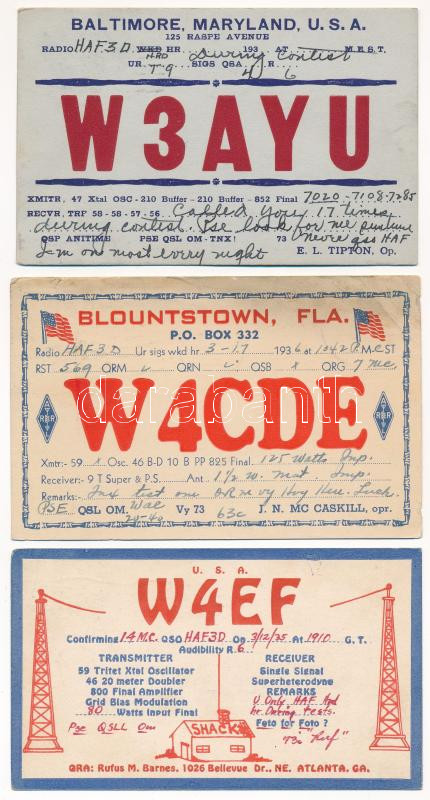 BALTIMORE, MARYLAND, U. S. A.
125 RASPE AVENUE
RADIO HAF3D WKD HR 193 AT M.E.S.T.
HRD During Contest
UR T-9 SIGS QSA 4 R 6
W3AYU
XMITR, 47 Xtal OSC - 210 Buffer - 210 Buffer - 852 Final 7020-7108-7285
RECVR, TRF 58 - 58 - 57 - 56 Called You 17 times
during contest. Pse look for me
QSP ANITIME PSE QSL OM - TNX! 73 Never qso HAF
I'm on most every night E. L. TIPTON, Op.
BLOUNTSTOWN, FLA.
P.O. BOX 332
Radio HAF3D Ur sigs wkd hr 3-17 1936 at 1042 P.M.C ST
RST 569 QRM v QRN v QSB x QRG 7 mc.
W4CDE
ARRL
ARRL
Xmtr: - 59 x Osc. 46 B-D 10 B PP 825 Final. 125 Watts Inp.
Receiver: - 9 T Super & P.S. Ant 1/2 w. Mat. Imp.
Remarks: test one vy Luck.
PSE QSL OM, Wac Vy 73 63c J. N. MC CASKILL, opr.
20-40
U. S. A.
W4EF
Confirming 14 M.C. QSO HAF3D On 3/12/35 At 1910 G. T.
Audibility R 6
TRANSMITTER RECEIVER
59 Tritet Xtal Oscillator Single Signal
46 20 meter Doubler Superheterodyne
800 Final Amplifier REMARKS
Grid Bias Modulation U Only HAF
80 Watts Input Final hr During Tests.
Pse QSLL Om SHACK Foto for Foto ?
73s "Ruf"
QRA: Rufus M. Barnes, 1026 Bellevue Dr., NE. ATLANTA, GA.
darabanth